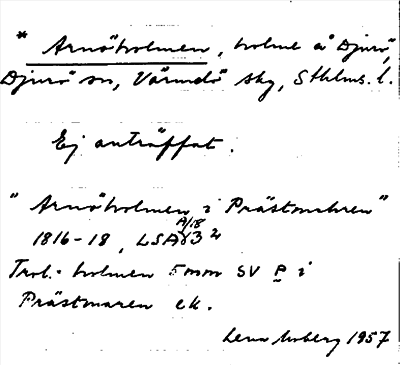 * Arnöholmen, holme å Djurö,
Djurö sn, Värmdö skg, Sthlms l.
Ej anträffat.
"Arnöholmen i Prästmahren"
1816-18, LSA A/18 83 2
Trol. holmen 5 mm SV P i
Prästmaren ek.
Lena 1957